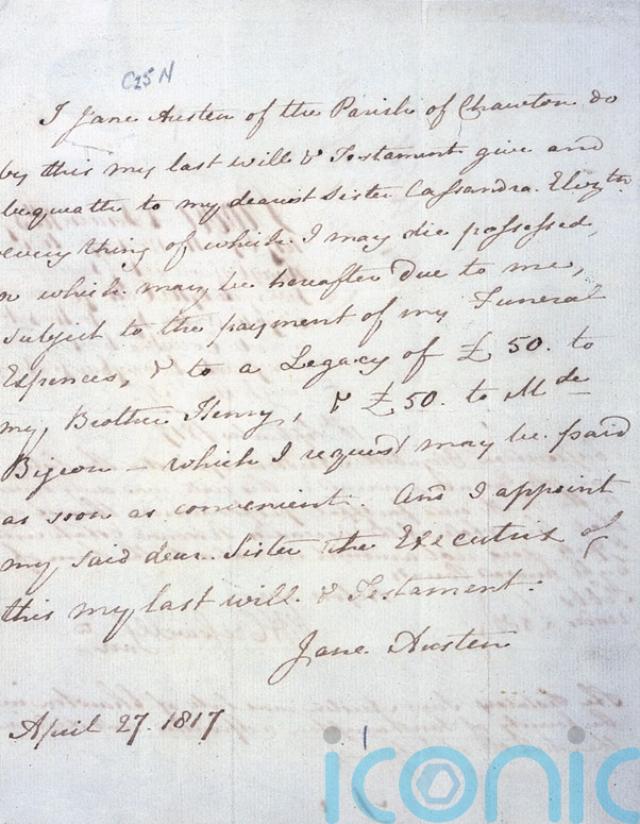 C25 N
I Jane Austen of the Parish of Chawton do
by this my last will & Testament give and
bequeath to my dearest Sister Cassandra Elizth
every thing of which I may die possessed,
or which may be hereafter due to me,
subject to the payment of my Funeral
Expences, & to a Legacy of £50. to
my Brother Henry, & £50. to Mde
Bigeon – which I request may be paid
as soon as convenient. And I appoint
my said dear Sister the Executrix of
this my last will & Testament.
Jane Austen
April 27. 1817
iconic